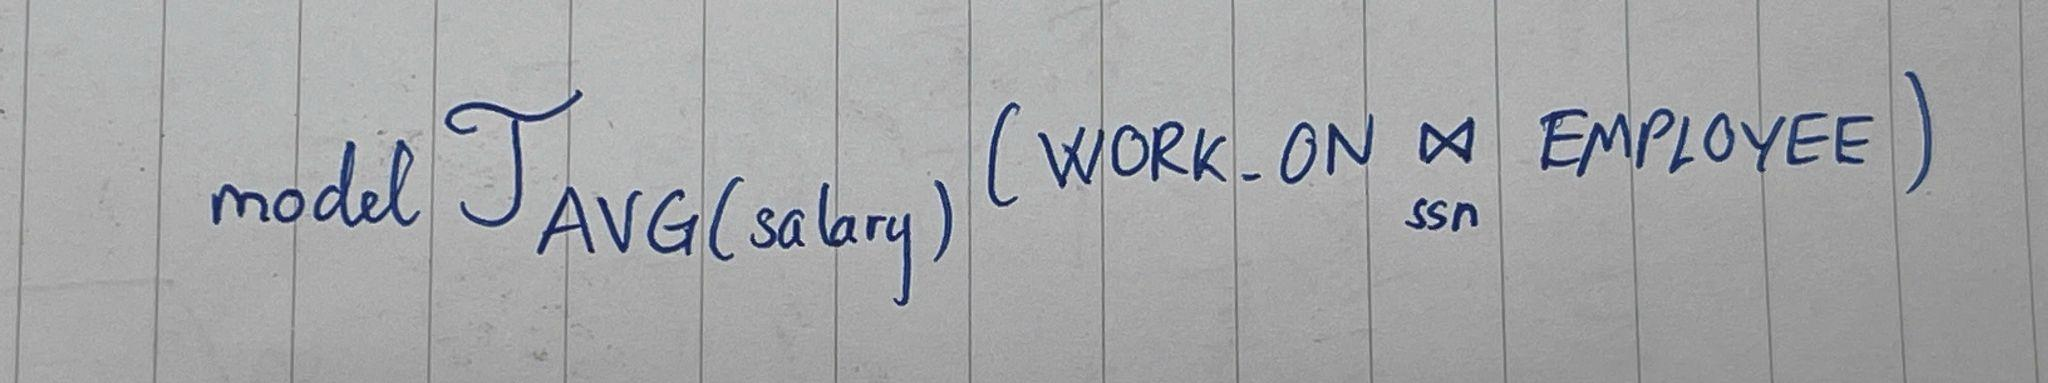 model 𝒯 AVG(salary) (WORK_ON ⋈ ssn EMPLOYEE)